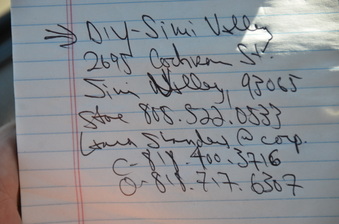 DIY-Simi Valley
2695 Cochran St.
Simi Valley, 93065
Store 805.522.0533
@ corp.
C-818.400.3716
O-818.717.6307